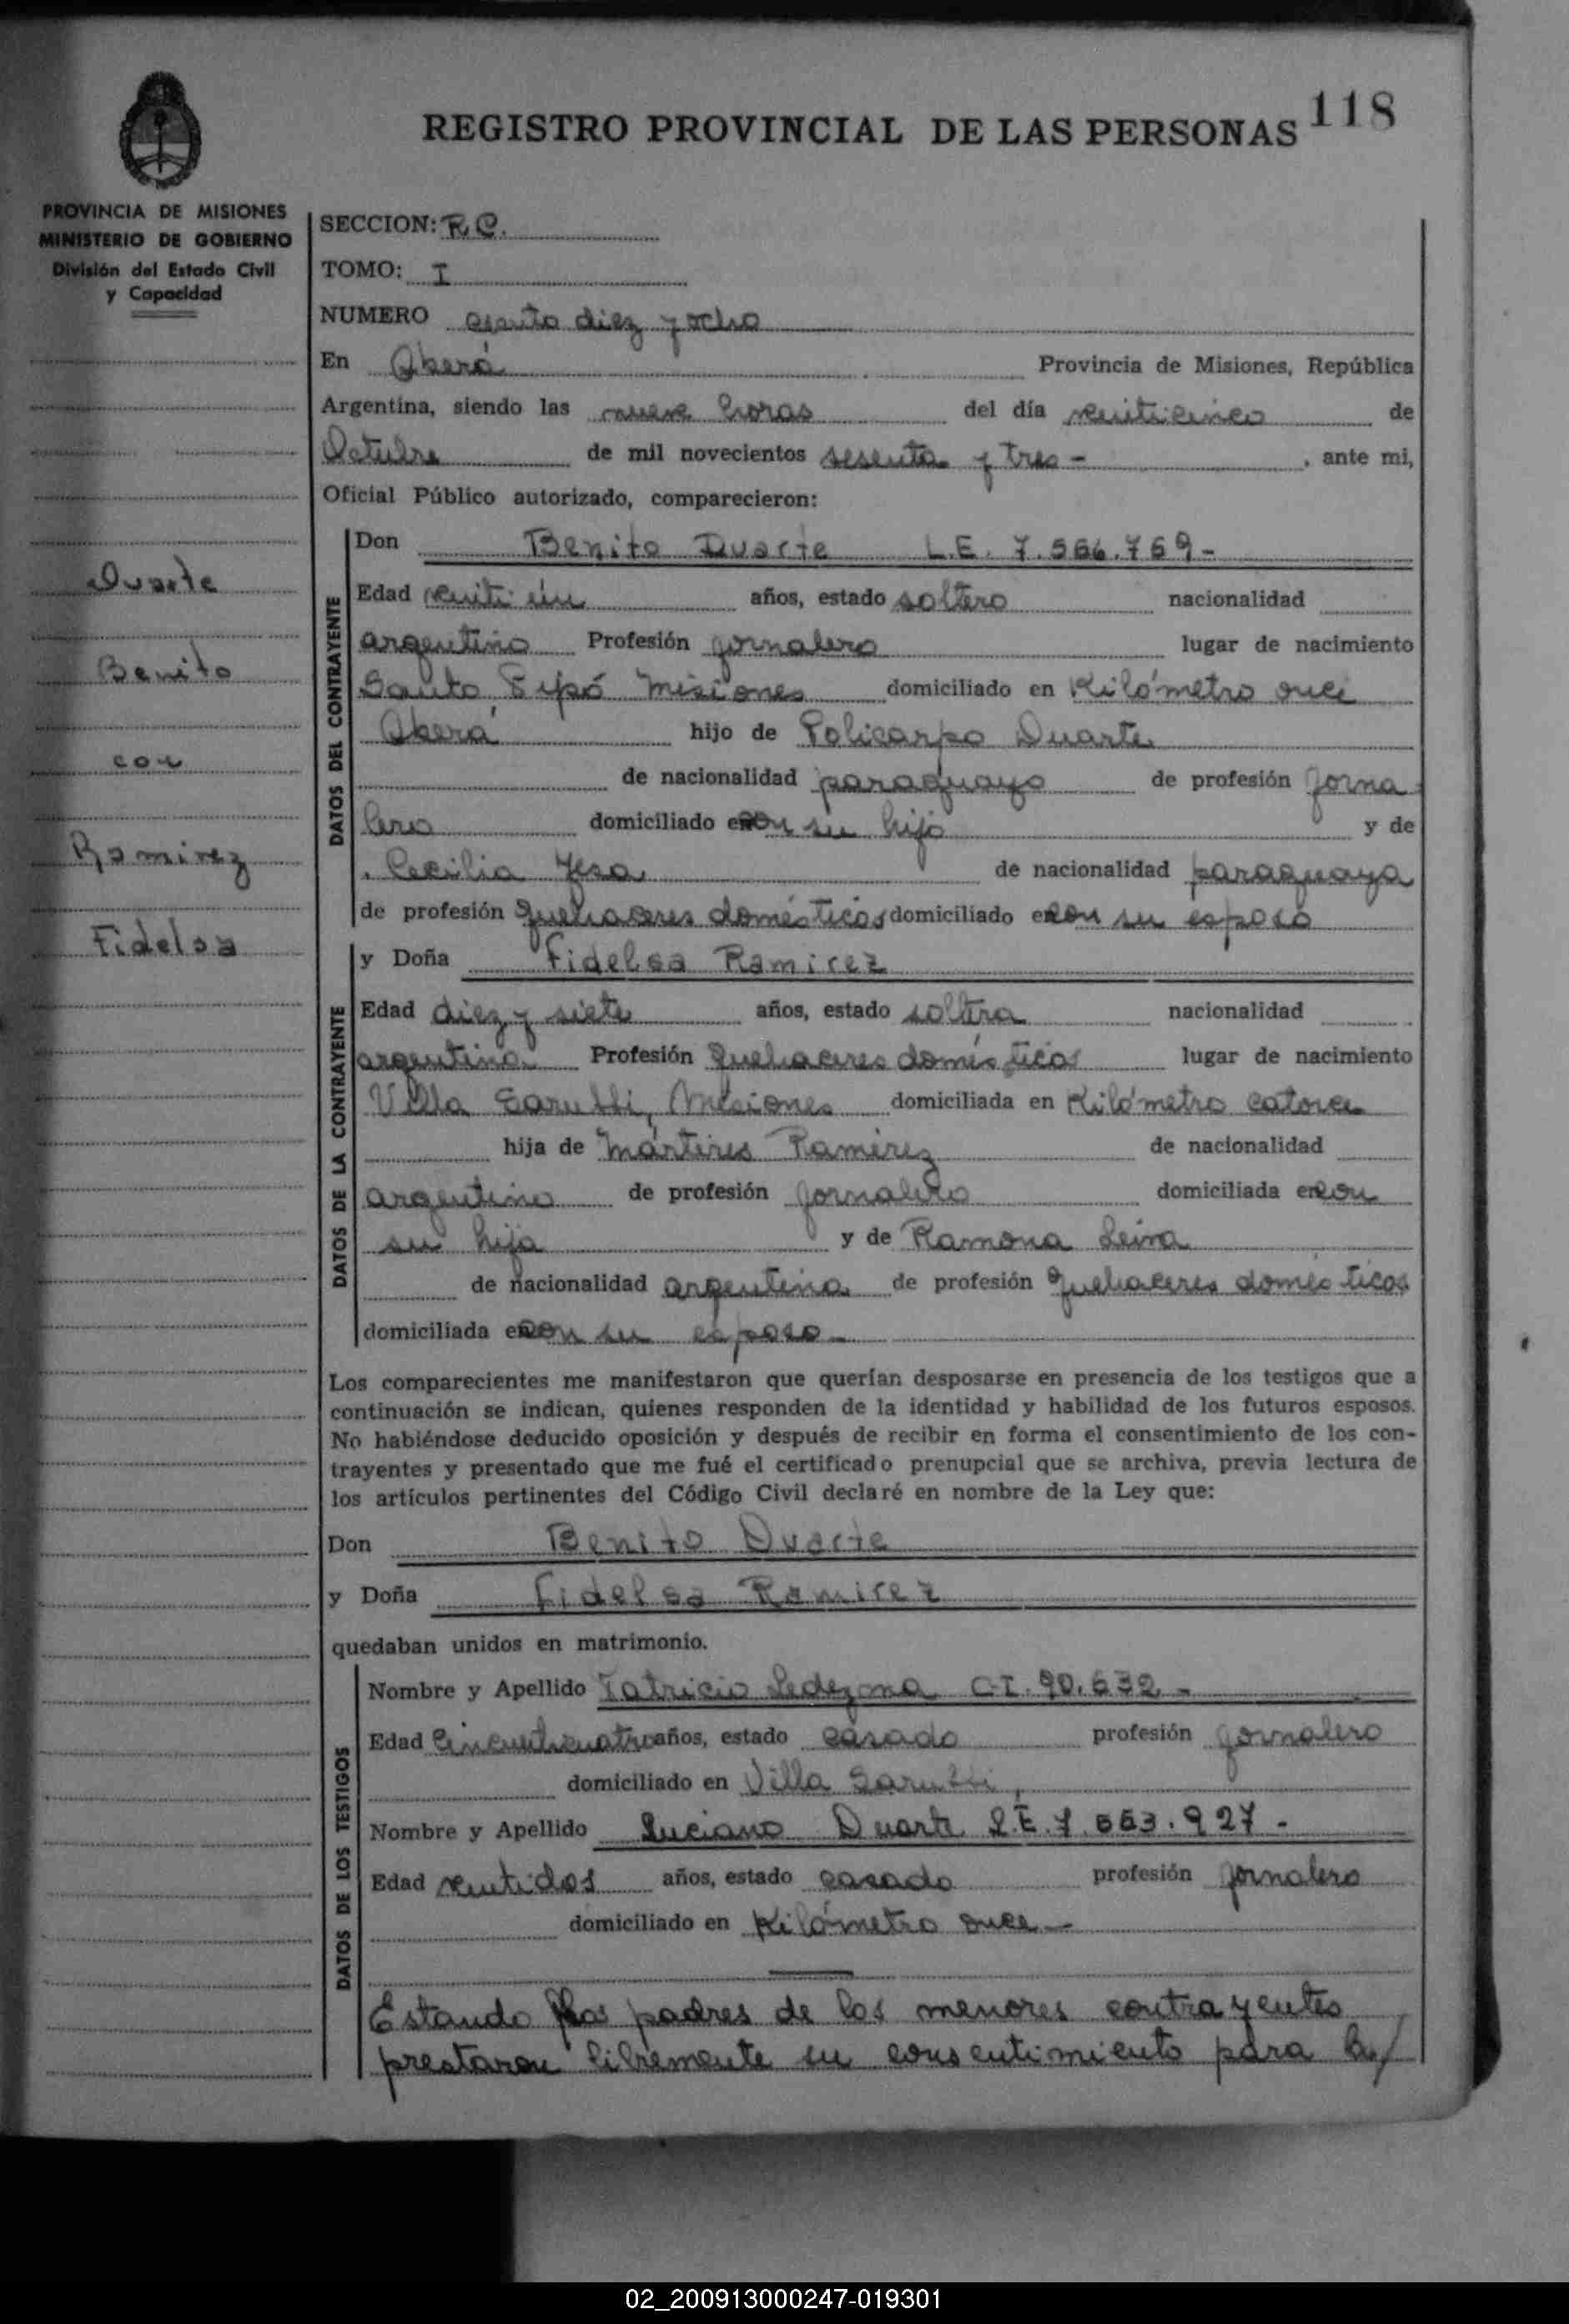 118
REGISTRO PROVINCIAL DE LAS PERSONAS
PROVINCIA DE MISIONES
MINISTERIO DE GOBIERNO
División del Estado Civil
y Capacidad
Duarte
Benito
con
Ramirez
Fidelsa
SECCION: R.C.
TOMO: I
NUMERO ciento diez y ocho
En Oberá Provincia de Misiones, República
Argentina, siendo las nueve horas del día veinticinco de
Octubre de mil novecientos sesenta y tres - , ante mi,
Oficial Público autorizado, comparecieron:
DATOS DEL CONTRAYENTE
Don Benito Duarte L.E. 7.566.769-
Edad veintiún años, estado soltero nacionalidad
argentino Profesión jornalero lugar de nacimiento
Santo Pipó Misiones domiciliado en Kilómetro once
Oberá hijo de Policarpo Duarte
de nacionalidad paraguayo de profesión jorna
lero domiciliado con su hijo y de
Cecilia de nacionalidad paraguaya
de profesión quehaceres domésticos domiciliado con su esposo
DATOS DE LA CONTRAYENTE
y Doña Fidelsa Ramirez
Edad diez y siete años, estado soltera nacionalidad
argentina Profesión quehaceres domésticos lugar de nacimiento
Villa Sarubbi, Misiones domiciliada en Kilómetro catorce
hija de Mártires Ramírez de nacionalidad
argentino de profesión jornalero domiciliada con
su hija y de Ramona Leiva
de nacionalidad argentina de profesión quehaceres domésticos
domiciliada con su esposo -
Los comparecientes me manifestaron que querían desposarse en presencia de los testigos que a
continuación se indican, quienes responden de la identidad y habilidad de los futuros esposos.
No habiéndose deducido oposición y después de recibir en forma el consentimiento de los con-
trayentes y presentado que me fué el certificado prenupcial que se archiva, previa lectura de
los artículos pertinentes del Código Civil declaré en nombre de la Ley que:
Don Benito Duarte
y Doña Fidelsa Ramirez
quedaban unidos en matrimonio.
DATOS DE LOS TESTIGOS
Nombre y Apellido Patricio Ledezma C.I. 90.632 -
Edad cincuenticuatro años, estado casado profesión jornalero
domiciliado en Villa Sarubbi,
Nombre y Apellido Luciano Duarte L.E. 7.563.927 -
Edad veintidos años, estado casado profesión jornalero
domiciliado en Kilómetro once -
Estando los padres de los menores contrayentes
prestaron libremente su consentimiento para la/
02_200913000247-019301